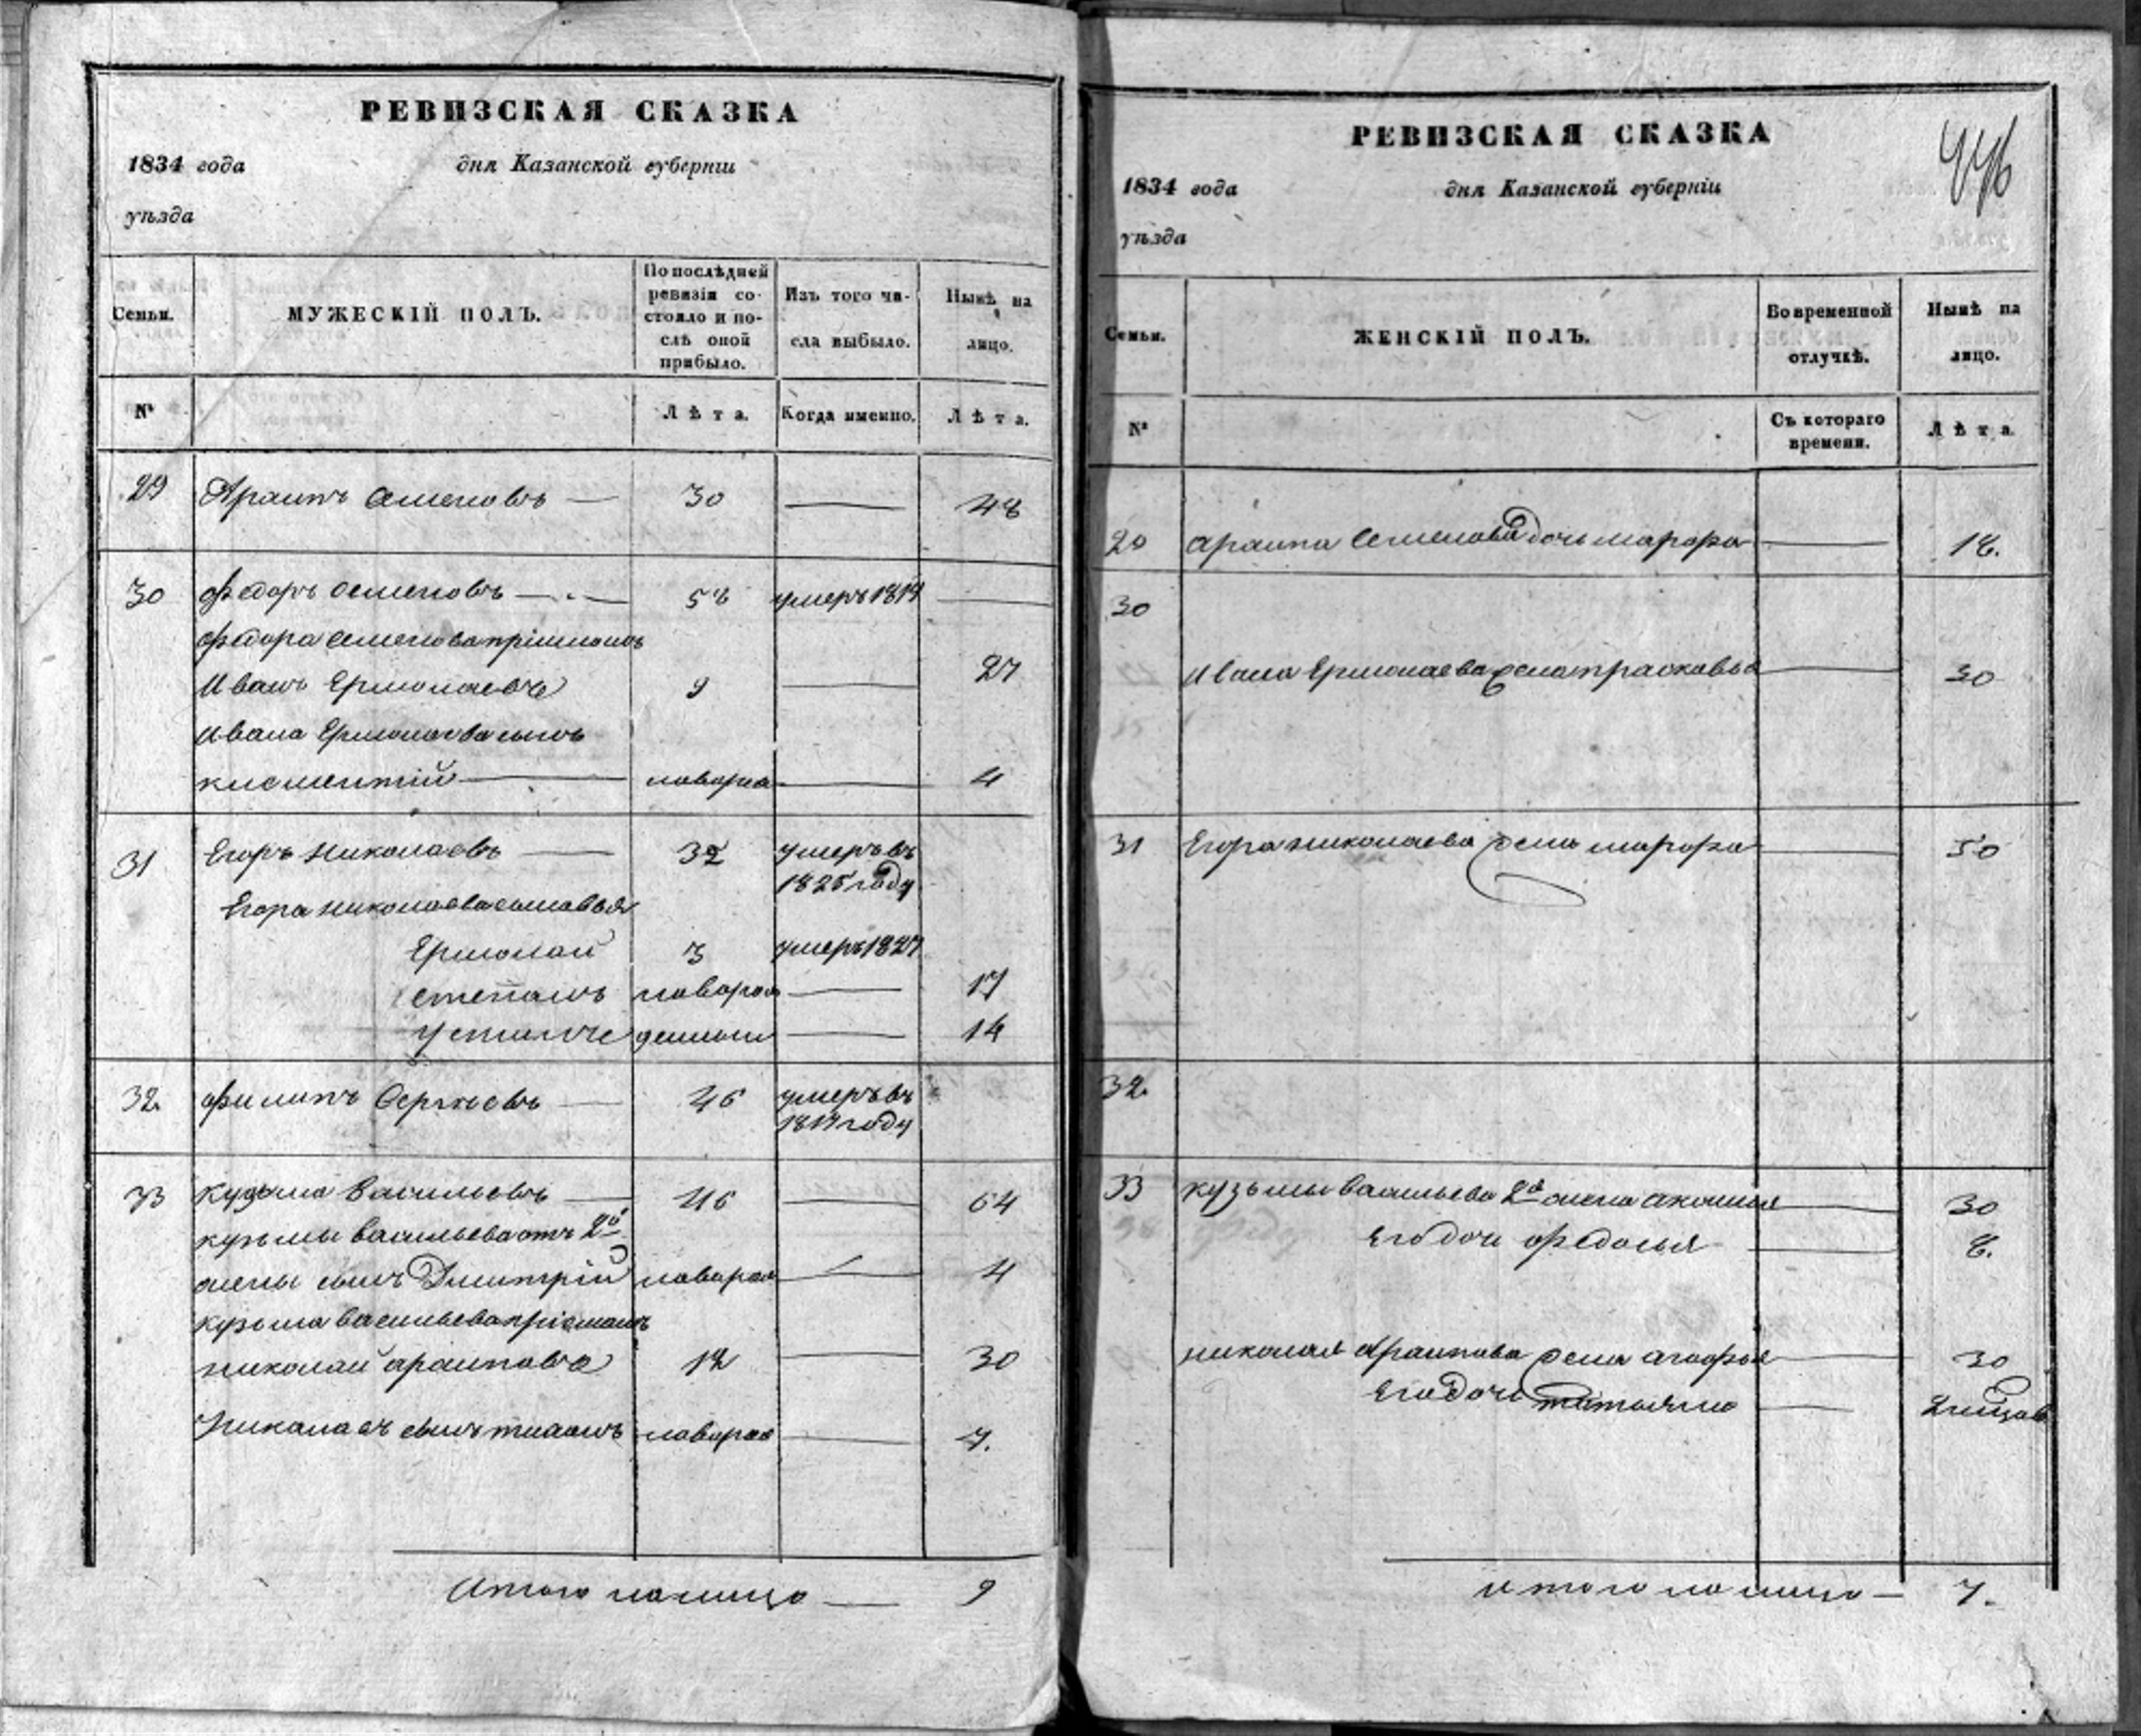 РЕВИЗСКАЯ СКАЗКА
1834 года дня Казанской губерніи
уѣзда
Семьи.
МУЖЕСКІЙ ПОЛЪ.
По послѣдней ревизіи со-
стояло и по-
слѣ оной
прибыло.
Изъ того чи-
сла выбыло.
Нынѣ на
лицо.
№
Лѣта.
Когда именно.
Лѣта.
29 Араипъ Семеновъ — 30 — 48
30 Федоръ Семеновъ — 52 умеръ 1819 —
Федора Семенова пріимошъ
Иванъ Ермолаевъ 9 — 27
Ивана Ермолаева сынъ
Климентій — новорож — 4
31 Егоръ Николаевъ — 32 умеръ въ
1825 году
Егора Николаева сыновья
Ермолай 3 умеръ 1827
Степанъ новорож — 17
Устинъ — 14
32 Филипъ Сергѣевъ — 46 умеръ въ
году
33 Кузьма Васильевъ — 46 — 64
Кузьмы Васильева отъ 2й
жены сынъ Дмитрій новорож — 4
Кузьма Васильева пріемышъ
Николай Араиповъ 12 — 30
сынъ новорож — 7.
Итого на лицо — 9
446
РЕВИЗСКАЯ СКАЗКА
1834 года дня Казанской губерніи
уѣзда
Семьи.
ЖЕНСКІЙ ПОЛЪ.
Во временной
отлучкѣ.
Нынѣ на
лицо.
№
Съ котораго
времени.
Лѣта.
29 Араипа Семенова дочь Марфа — 18.
30
Ивана Ермолаева жена Прасковья — 30
31 Егора Николаева жена Марфа — 50
32.
33 Кузьмы Васильева 2я жена Акулина — 30
Его дочь Федосья — 8.
Николая Араипова жена Агафья — 30
Его дочь Татьяна —
Итого на лицо — 7.